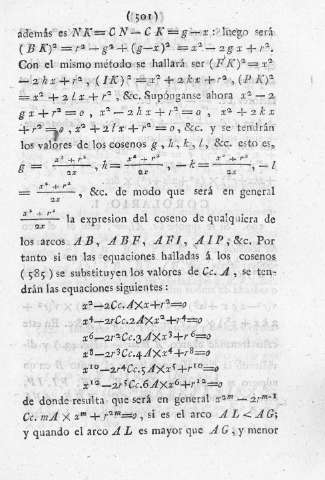 (501)
además es NK=CN−CK=g−x: luego será
(BK)²=r²−g²+(g−x)²=x²−2gx+r².
Con el mismo método se hallará ser (FK)²=x²
−2hx+r², (IK)²=x²+2kx+r², (PK)²
=x²+2lx+r², &c. Supónganse ahora x²−2
gx+r²=0, x²−2hx+r²=0, x²+2kx
+r²=0, x²+2lx+r²=0, &c. y se tendrán
los valores de los cosenos g, h, k, l, &c. esto es,
g = x²+r²/2x, h = x²+r²/2x, −k = x²+r²/2x, −l
= x²+r²/2x, &c. de modo que será en general
x²+r²/2x la expresion del coseno de qualquiera de
los arcos AB, ABF, AFI, AIP, &c. Por
tanto si en las equaciones halladas á los cosenos
(585) se substituyen los valores de Cc. A, se ten-
drán las equaciones siguientes:
x²−2Cc.A×x+r²=0
x⁴−2rCc.2A×x²+r⁴=0
x⁶−2r²Cc.3A×x³+r⁶=0
x⁸−2r³Cc.4A×x⁴+r⁸=0
x¹⁰−2r⁴Cc.5A×x⁵+r¹⁰=0
x¹²−2r⁵Cc.6A×x⁶+r¹²=0
de donde resulta que será en general x²ᵐ−2rᵐ⁻¹
Cc. mA × xᵐ+r²ᵐ=0, si es el arco AL<AG;
y quando el arco AL es mayor que AG, y menor